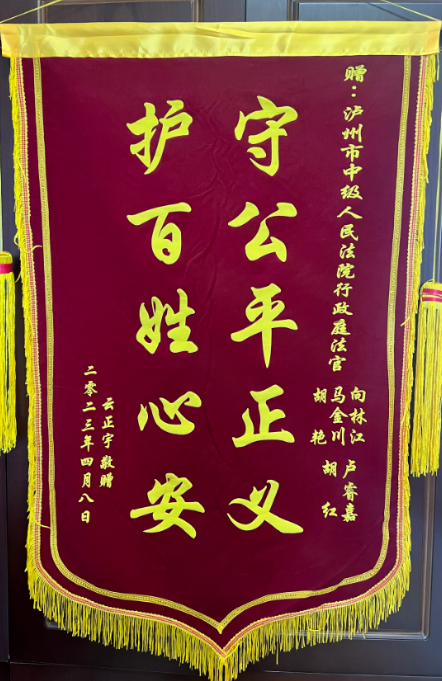 赠：泸州市中级人民法院行政庭法官
向林江 卢睿嘉
马金川 胡红
胡艳
守公平正义
护百姓心安
云正宇 敬赠
二零二三年四月八日